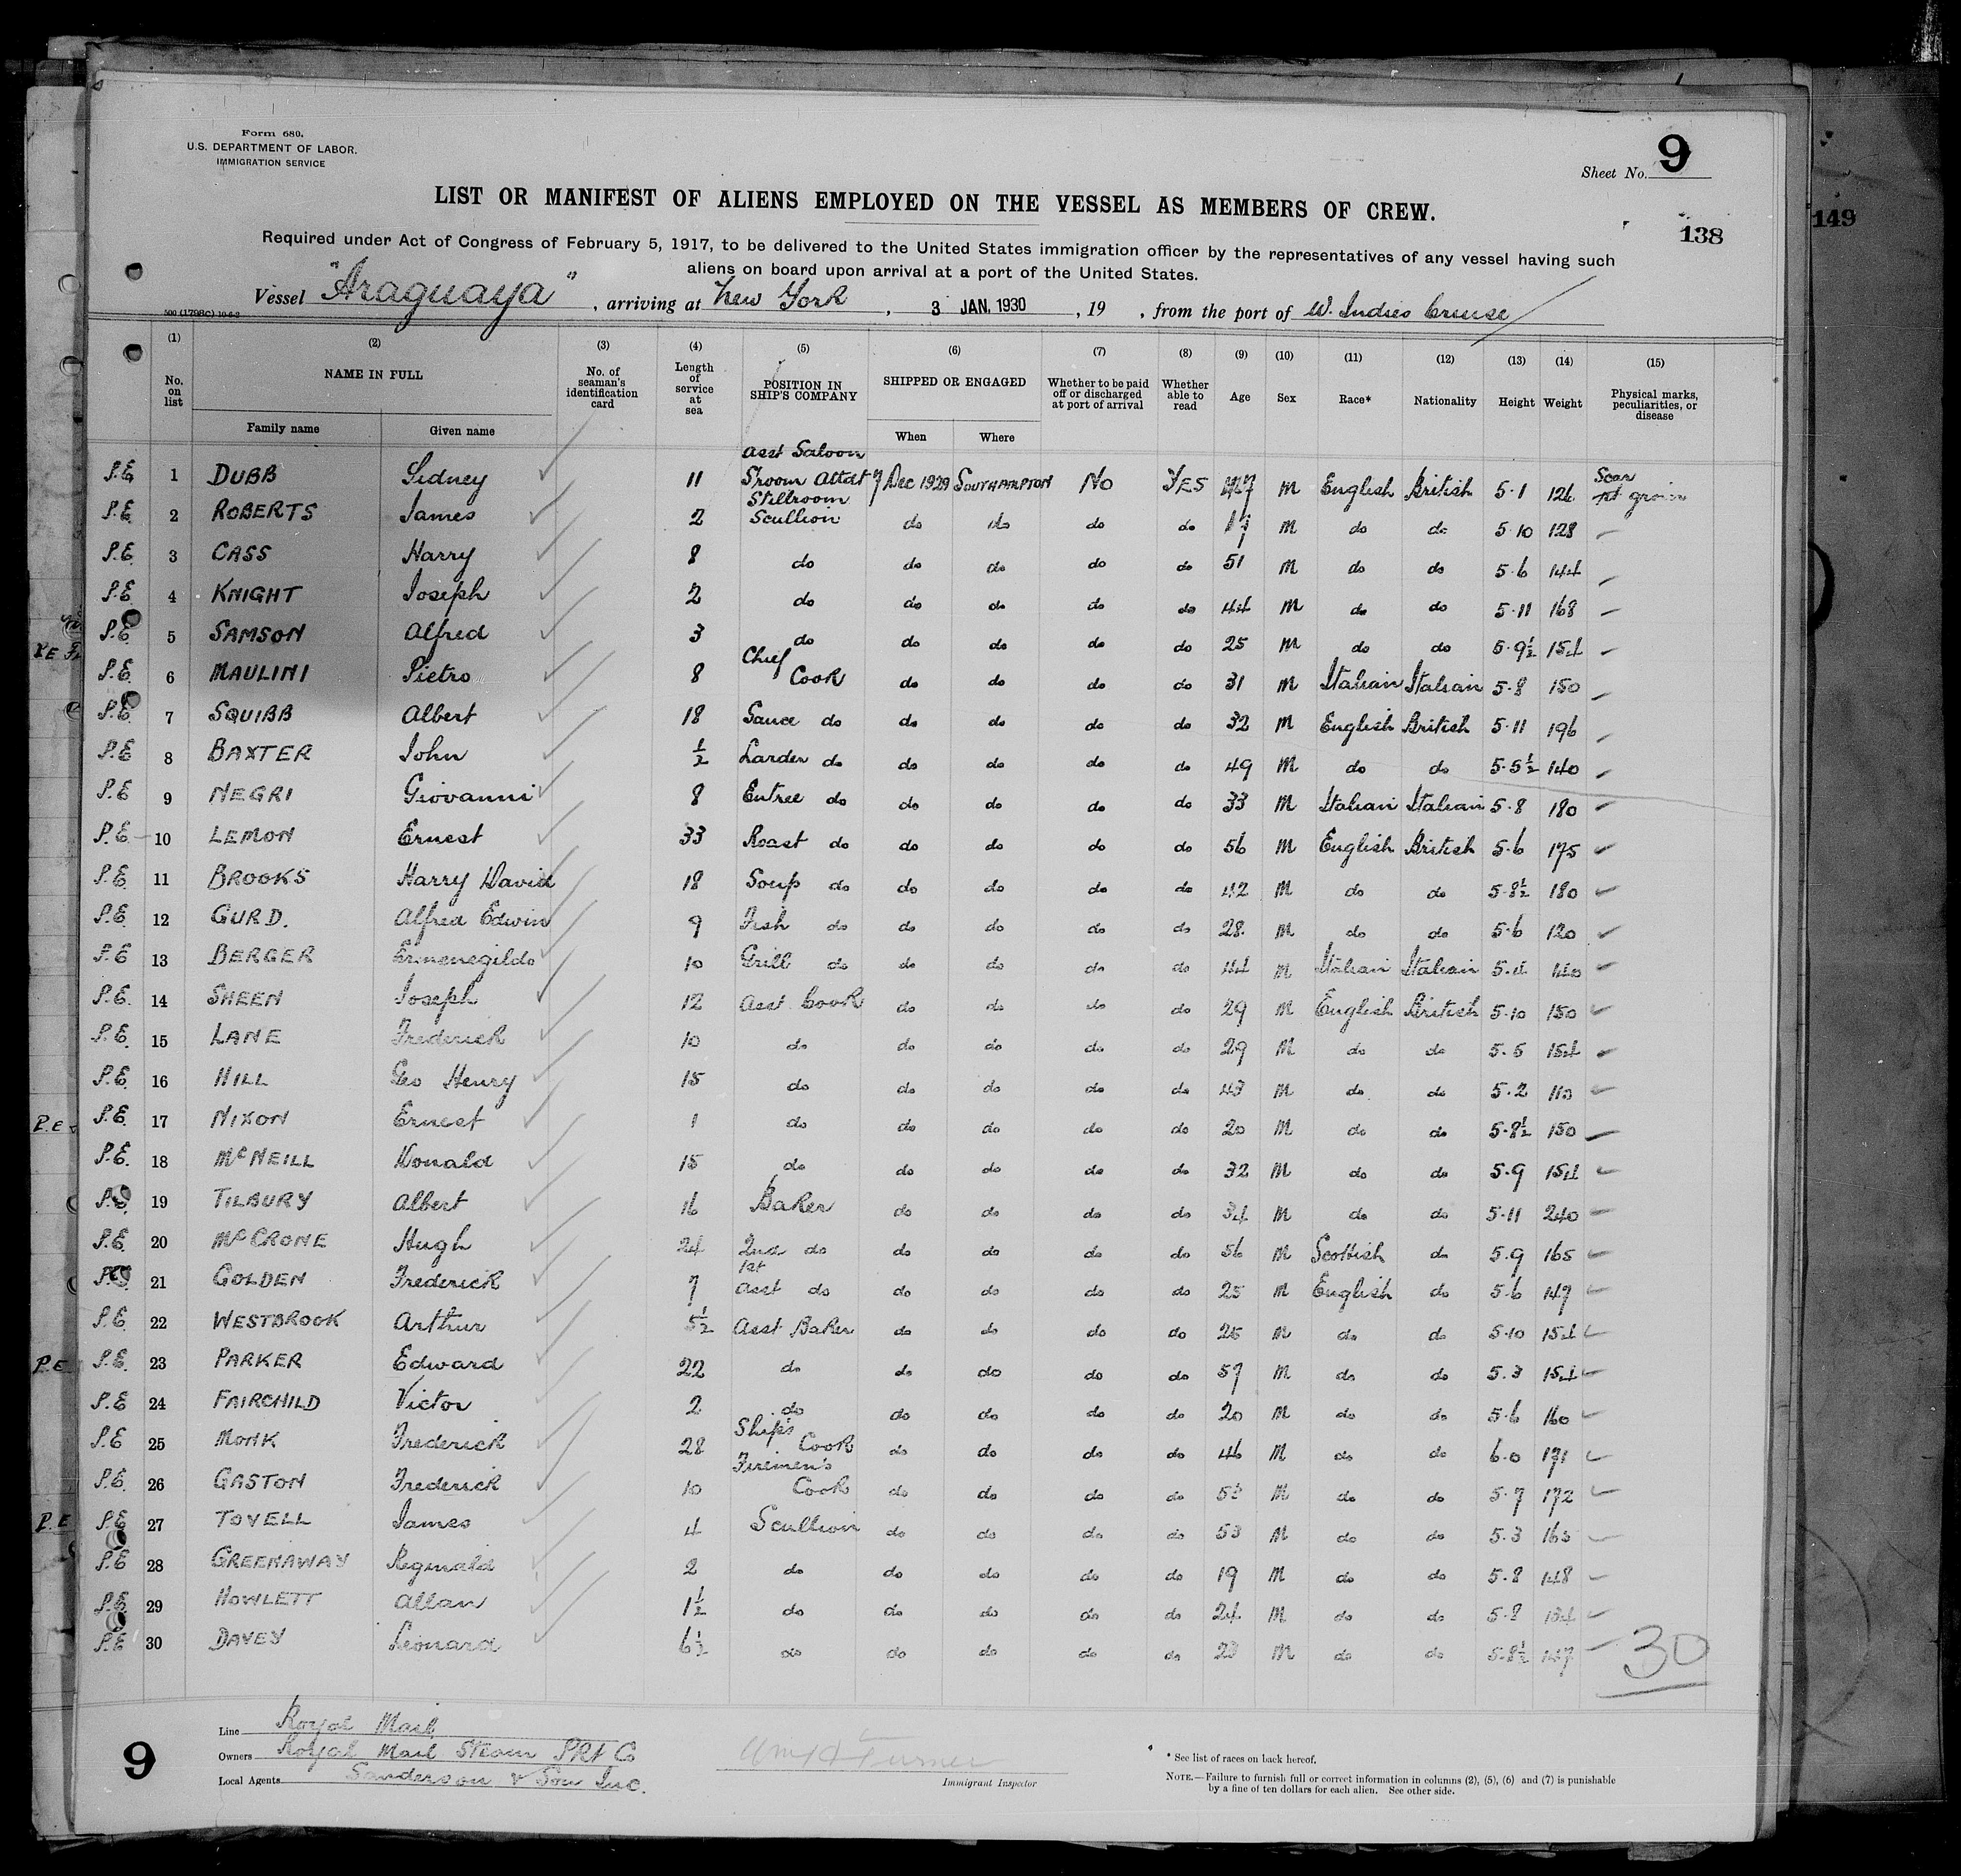 Form 680.
U.S. DEPARTMENT OF LABOR.
IMMIGRATION SERVICE
Sheet No. 9
LIST OR MANIFEST OF ALIENS EMPLOYED ON THE VESSEL AS MEMBERS OF CREW.
138
149
Required under Act of Congress of February 5, 1917, to be delivered to the United States immigration officer by the representatives of any vessel having such
aliens on board upon arrival at a port of the United States.
Vessel "Araguaya", arriving at New York, 3 JAN. 1930, 19 , from the port of W. Indies Cruise
(1) (2) (3) (4) (5) (6) (7) (8) (9) (10) (11) (12) (13) (14) (15)
No. on list NAME IN FULL Family name Given name No. of seaman's identification card Length of service at sea POSITION IN SHIP'S COMPANY SHIPPED OR ENGAGED When Where Whether to be paid off or discharged at port of arrival Whether able to read Age Sex Race* Nationality Height Weight Physical marks, peculiarities, or disease
P.E. 1 DUBB Sidney 11 Asst Saloon S'room Attdt 7 Dec 1929 SOUTHAMPTON No YES M English British 5.1 126 Scar groin
P.E. 2 ROBERTS James 2 Stillroom Scullion do do do do M do do 5.10 128
P.E. 3 CASS Harry 8 do do do do do 51 M do do 5.6 144
P.E. 4 KNIGHT Joseph 2 do do do do do 44 M do do 5.11 168
P.E. 5 SAMSON Alfred 3 do do do do do 25 M do do 5.9½ 154
P.E. 6 MAULINI Pietro 8 Chief Cook do do do do 31 M Italian Italian 5.8 150
P.E. 7 SQUIBB Albert 18 Sauce do do do do do 32 M English British 5.11 196
P.E. 8 BAXTER John ½ Larder do do do do do 49 M do do 5.5½ 140
P.E. 9 NEGRI Giovanni 8 Entree do do do do do 33 M Italian Italian 5.8 180
P.E. 10 LEMON Ernest 33 Roast do do do do do 56 M English British 5.6 175
P.E. 11 BROOKS Harry David 18 Soup do do do do do 42 M do do 5.8½ 180
P.E. 12 GURD. Alfred Edwin 9 Fish do do do do do 28. M do do 5.6 120
P.E. 13 BERGER Ermenegildo 10 Grill do do do do do 44 M Italian Italian 5.4 140
P.E. 14 SHEEN Joseph 12 Asst Cook do do do do 29 M English British 5.10 150
P.E. 15 LANE Frederick 10 do do do do do 29 M do do 5.5 154
P.E. 16 HILL Geo Henry 15 do do do do do 43 M do do 5.2 110
P.E. 17 NIXON Ernest 1 do do do do do 20 M do do 5.8½ 150
P.E. 18 McNEILL Donald 15 do do do do do 32 M do do 5.9 154
P.E. 19 TILBURY Albert 16 Baker do do do do 34 M do do 5.11 240
P.E. 20 McCRONE Hugh 24 2nd do do do do do 56 M Scottish do 5.9 165
P.E. 21 GOLDEN Frederick 7 1st Asst do do do do do 25 M English do 5.6 147
P.E. 22 WESTBROOK Arthur 5½ Asst Baker do do do do 25 M do do 5.10 154
P.E. 23 PARKER Edward 22 do do do do do 57 M do do 5.3 154
P.E. 24 FAIRCHILD Victor 2 do do do do do 20 M do do 5.6 160
P.E. 25 MONK Frederick 28 Ship's Cook do do do do 46 M do do 6.0 171
P.E. 26 GASTON Frederick 10 Firemen's Cook do do do do M do do 5.7 172
P.E. 27 TOVELL James 4 Scullion do do do do 53 M do do 5.3 163
P.E. 28 GREENAWAY Reginald 2 do do do do do 19 M do do 5.8 148
P.E. 29 HOWLETT Allan 1½ do do do do do 24 M do do 5.8 134
P.E. 30 DAVEY Leonard 6½ do do do do do 23 M do do 5.8½ 147
30
Line Royal Mail
Owners Royal Mail Steam Pkt Co
Local Agents Sanderson & Son Inc.
9
Turner
Immigrant Inspector
* See list of races on back hereof.
NOTE.—Failure to furnish full or correct information in columns (2), (5), (6) and (7) is punishable
by a fine of ten dollars for each alien. See other side.
500 (1798c) 10-6-2